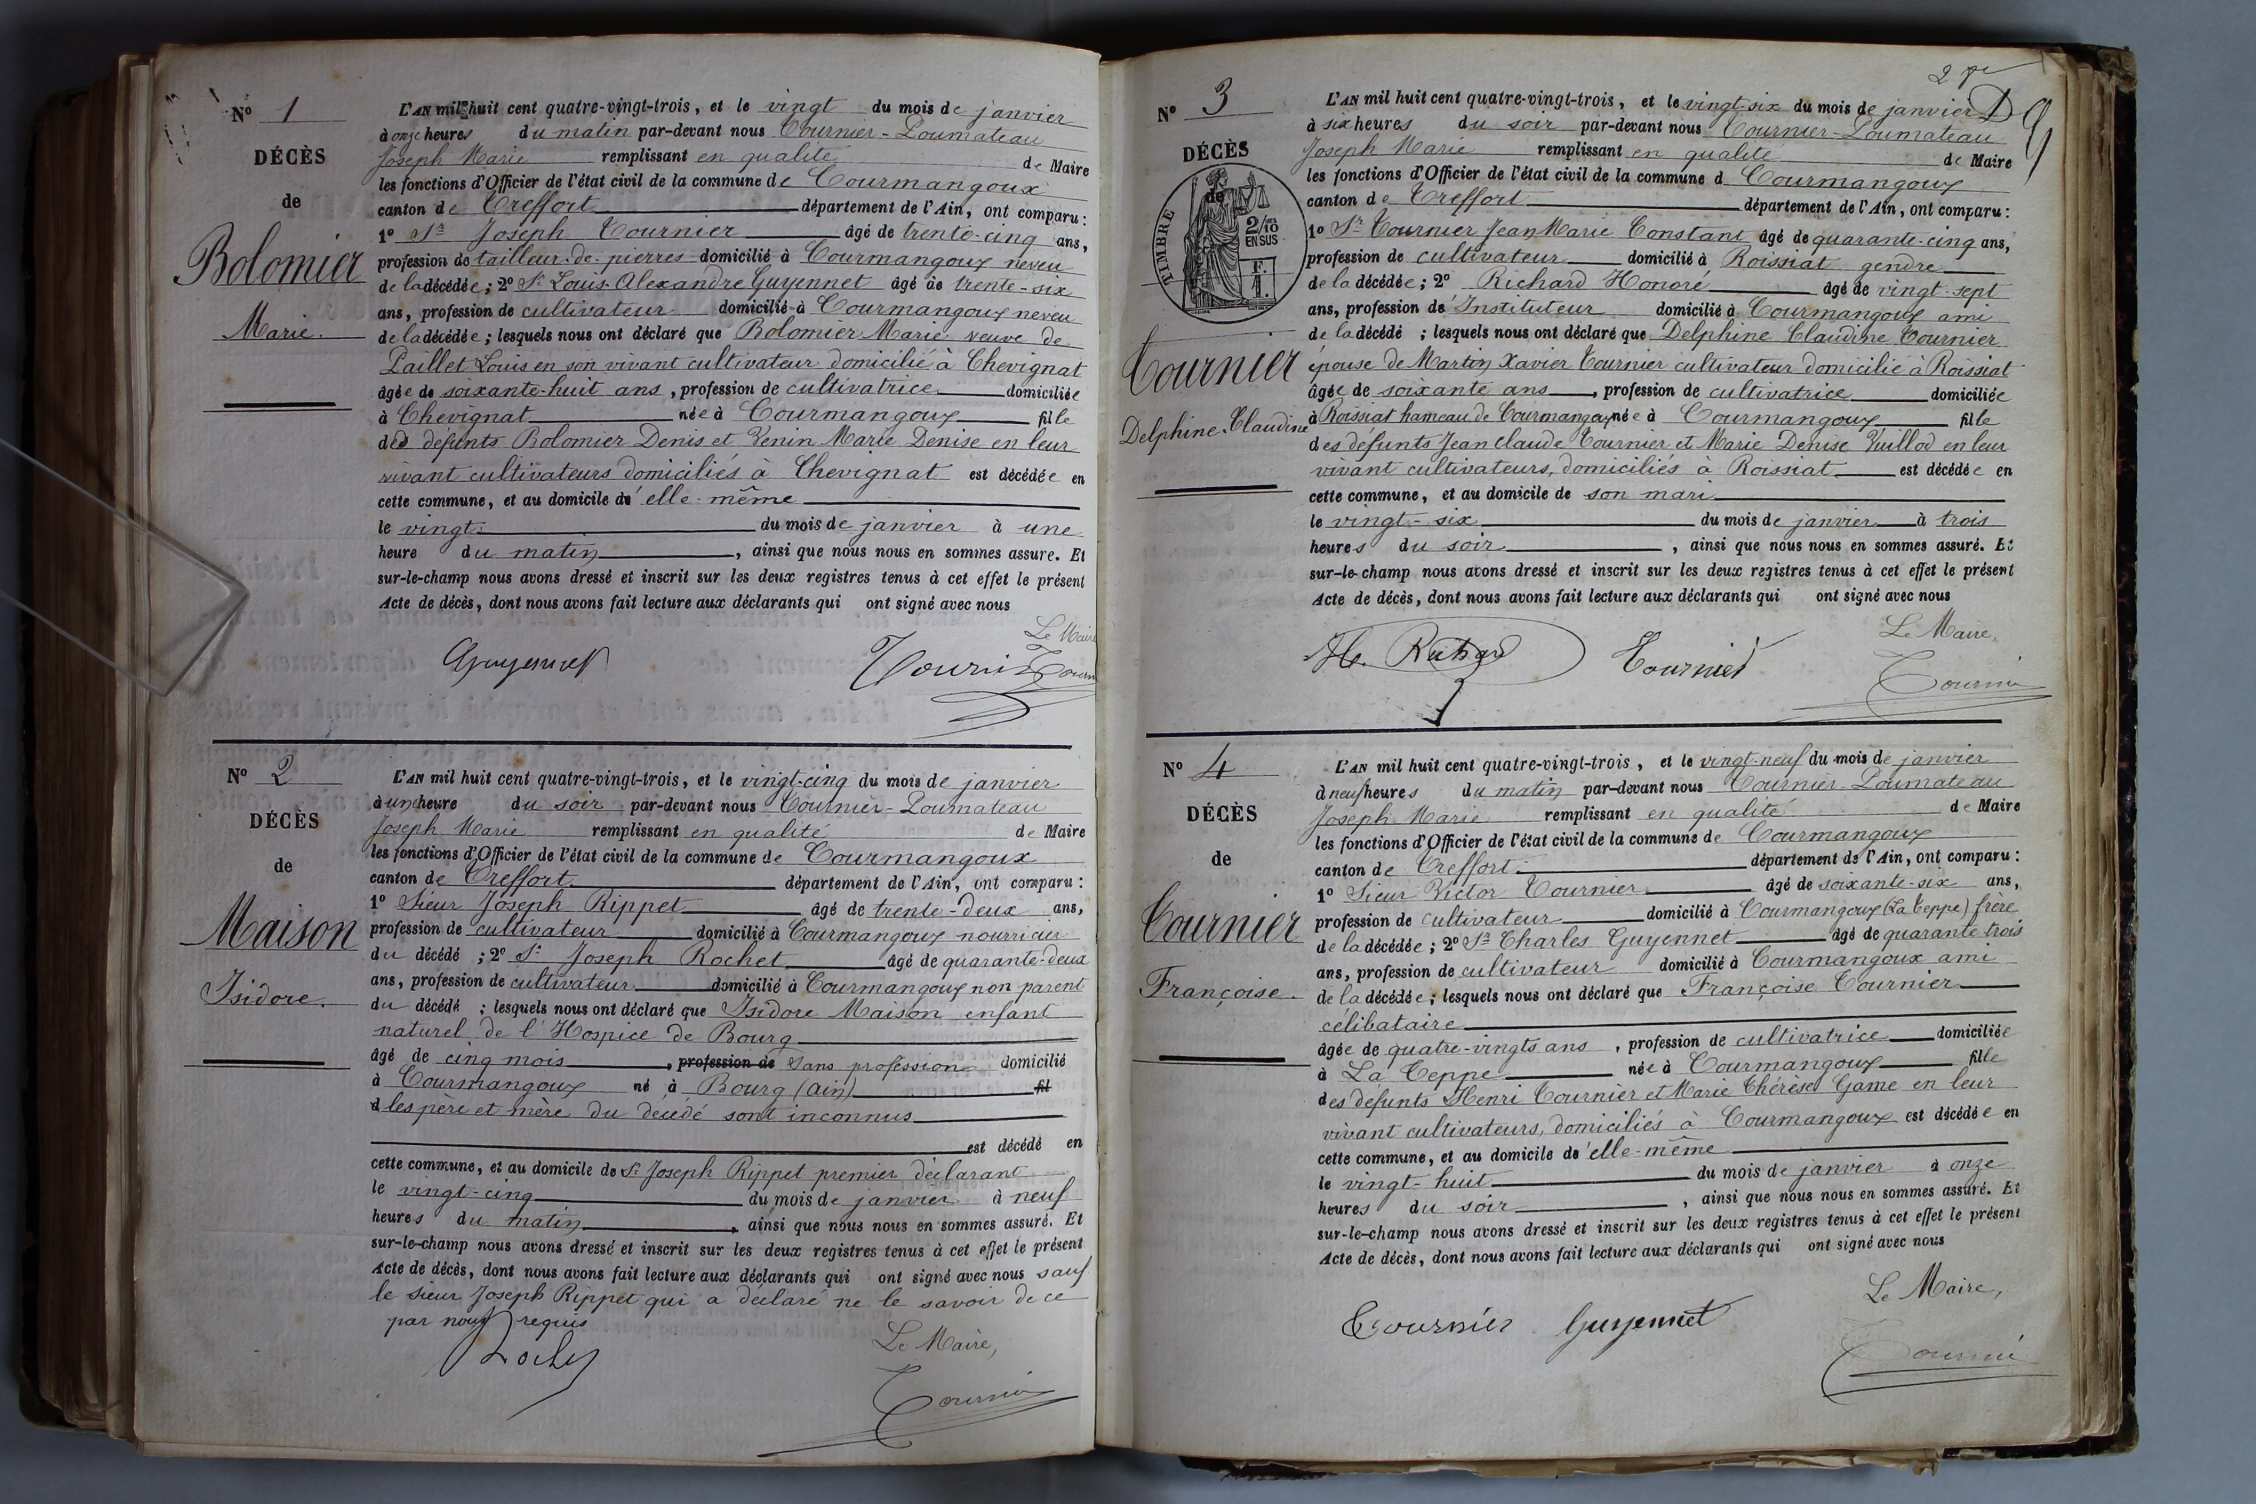 N° 1
DÉCÈS
de
Bolomier
Marie.
L'AN mil huit cent quatre-vingt-trois, et le vingt du mois de janvier
à onze heures du matin par-devant nous Tournier-Loumateau
Joseph Marie remplissant en qualité de Maire
les fonctions d'Officier de l'état civil de la commune de Courmangoux
canton de Treffort département de l'Ain, ont comparu :
1° Sr Joseph Tournier âgé de trente-cinq ans,
profession de tailleur-de-pierres domicilié à Courmangoux neveu
de la décédée ; 2° Sr Louis-Alexandre Guyennet âgé de trente-six
ans, profession de cultivateur domicilié à Courmangoux neveu
de la décédée ; lesquels nous ont déclaré que Bolomier Marie veuve de
Paillet Louis en son vivant cultivateur domicilié à Chevignat
âgée de soixante-huit ans, profession de cultivatrice domiciliée
à Chevignat née à Courmangoux fille
des défunts Bolomier Denis et Venin Marie Denise en leur
vivant cultivateurs domiciliés à Chevignat est décédée en
cette commune, et au domicile d'elle-même
le vingt du mois de janvier à une
heure du matin, ainsi que nous nous en sommes assuré. Et
sur-le-champ nous avons dressé et inscrit sur les deux registres tenus à cet effet le présent
Acte de décès, dont nous avons fait lecture aux déclarants qui ont signé avec nous
Le Maire
Guyennet Tournier Tournier
N° 2
DÉCÈS
de
Maison
Isidore.
L'AN mil huit cent quatre-vingt-trois, et le vingt-cinq du mois de janvier
à une heure du soir par-devant nous Tournier-Loumateau
Joseph Marie remplissant en qualité de Maire
les fonctions d'Officier de l'état civil de la commune de Courmangoux
canton de Treffort département de l'Ain, ont comparu :
1° Sieur Joseph Rippet âgé de trente-deux ans,
profession de cultivateur domicilié à Courmangoux nourricier
du décédé ; 2° Sr Joseph Rochet âgé de quarante-deux
ans, profession de cultivateur domicilié à Courmangoux non parent
du décédé ; lesquels nous ont déclaré que Isidore Maison enfant
naturel de l'Hospice de Bourg
âgé de cinq mois, profession de sans profession domicilié
à Courmangoux né à Bourg (Ain) fil
d les père et mère du décédé sont inconnus
est décédé en
cette commune, et au domicile de Sr Joseph Rippet premier déclarant
le vingt-cinq du mois de janvier à neuf
heures du matin, ainsi que nous nous en sommes assuré. Et
sur-le-champ nous avons dressé et inscrit sur les deux registres tenus à cet effet le présent
Acte de décès, dont nous avons fait lecture aux déclarants qui ont signé avec nous sauf
le sieur Joseph Rippet qui a déclaré ne le savoir de ce
par nous requis
Le Maire,
Rochet
Tournier
27
N° 3
DÉCÈS
de
TIMBRE
2/10 EN SUS
F. 1.
Tournier
Delphine-Claudine
L'AN mil huit cent quatre-vingt-trois, et le vingt-six du mois de janvier
à six heures du soir par-devant nous Tournier-Loumateau
Joseph Marie remplissant en qualité de Maire
les fonctions d'Officier de l'état civil de la commune d Courmangoux
canton de Treffort département de l'Ain, ont comparu :
1° Sr Tournier Jean Marie Constant âgé de quarante-cinq ans,
profession de cultivateur domicilié à Roissiat gendre
de la décédée ; 2° Richard Honoré âgé de vingt-sept
ans, profession d'Instituteur domicilié à Courmangoux ami
de la décédé ; lesquels nous ont déclaré que Delphine Claudine Tournier
épouse de Martin Xavier Tournier cultivateur domicilié à Roissiat
âgée de soixante ans, profession de cultivatrice domiciliée
à Roissiat hameau de Courmangoux née à Courmangoux fille
des défunts Jean Claude Tournier et Marie Denise Vuillod en leur
vivant cultivateurs, domiciliés à Roissiat est décédée en
cette commune, et au domicile de son mari
le vingt-six du mois de janvier à trois
heures du soir, ainsi que nous nous en sommes assuré. Et
sur-le-champ nous avons dressé et inscrit sur les deux registres tenus à cet effet le présent
Acte de décès, dont nous avons fait lecture aux déclarants qui ont signé avec nous
Le Maire,
H. Richard Tournier Tournier
N° 4
DÉCÈS
de
Tournier
Françoise.
L'AN mil huit cent quatre-vingt-trois, et le vingt-neuf du mois de janvier
à neuf heures du matin par-devant nous Tournier-Loumateau
Joseph Marie remplissant en qualité de Maire
les fonctions d'Officier de l'état civil de la commune de Courmangoux
canton de Treffort département de l'Ain, ont comparu :
1° Sieur Victor Tournier âgé de soixante-six ans,
profession de cultivateur domicilié à Courmangoux (La Teppe) frère
de la décédée ; 2° Sr Charles Guyennet âgé de quarante-trois
ans, profession de cultivateur domicilié à Courmangoux ami
de la décédée ; lesquels nous ont déclaré que Françoise Tournier
célibataire
âgée de quatre-vingts ans, profession de cultivatrice domiciliée
à La Teppe née à Courmangoux fille
des défunts Henri Tournier et Marie Thérèse Game en leur
vivant cultivateurs, domiciliés à Courmangoux est décédée en
cette commune, et au domicile d'elle-même
le vingt-huit du mois de janvier à onze
heures du soir, ainsi que nous nous en sommes assuré. Et
sur-le-champ nous avons dressé et inscrit sur les deux registres tenus à cet effet le présent
Acte de décès, dont nous avons fait lecture aux déclarants qui ont signé avec nous
Le Maire,
Tournier Guyennet
Tournier